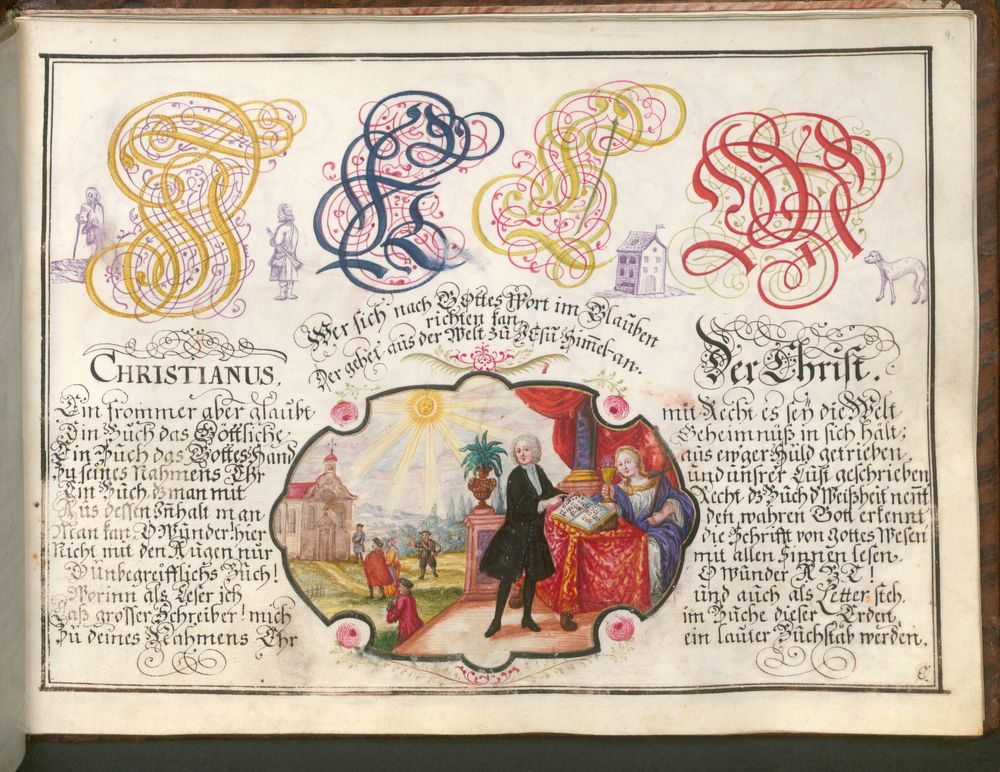 9.
Wer sich nach GOttes Wort im Glauben
richten kan,
Der gehet aus der Welt zu JEsu Him̅el-an.
CHRISTIANUS. Der Christ.
Ein frommer aber glaubt mit Recht es seÿ die Welt
Ein Buch das Göttliche Geheimnüß in sich hält;
Ein Buch das Gottes Hand aus ew'ger Huld getrieben,
Zu seines Nahmens Ehr und unsrer Lust geschrieben
Ein Buch ds man mit Recht ds Buch d Weißheit nent
Aus dessen Inhalt man den wahren Gott erkennt,
Man kan O Wunder! hier die Schrifft von Gottes Wesen
Nicht mit den Augen nur mit allen Sinnen lesen.
O unbegreifflichs Buch! O Wunder A.B.C!
Worinn als Leser ich und auch als Letter steh,
Laß grosser Schreiber! mich im Buche dieser Erden
Zu deines Nahmens Ehr ein lauter Buchstab werden.